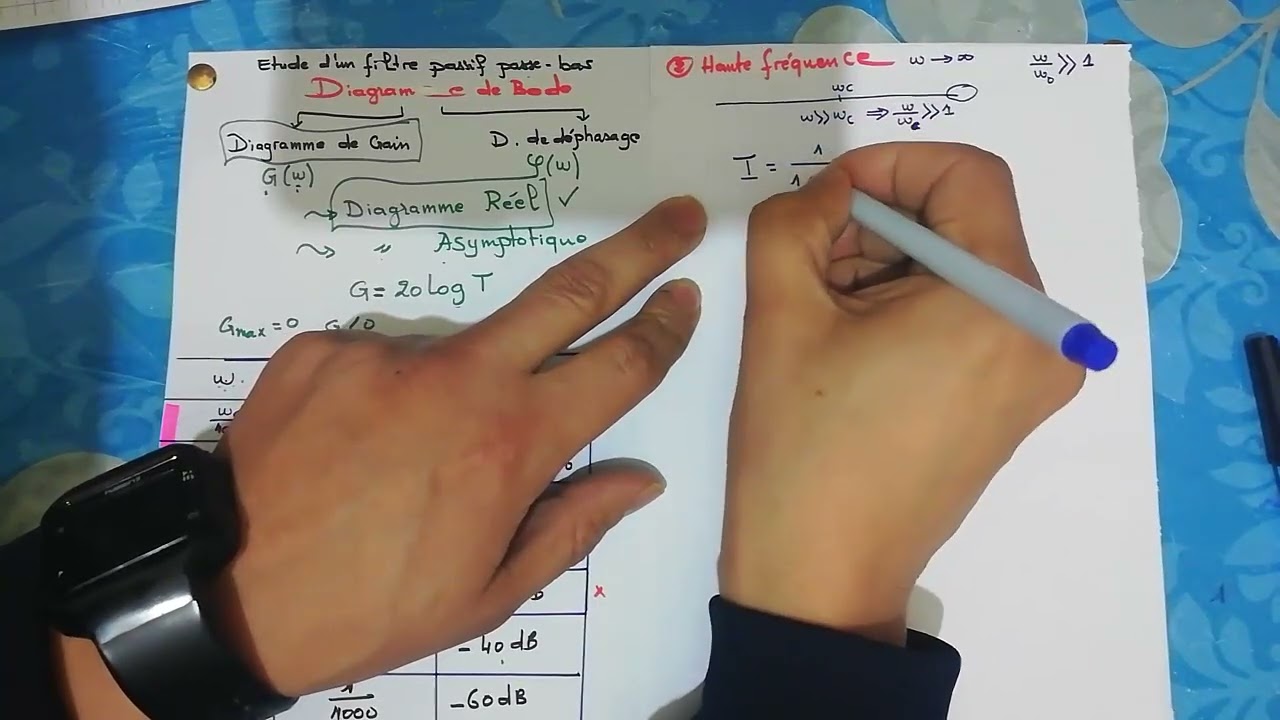 Etude d'un filtre passif passe-bas
Diagram e de Bode
Diagramme de Gain
D. de déphasage
G(w)
φ(w)
Diagramme Réel ✓
" Asymptotique
G = 20 log T
Gmax = 0
w
-40 dB
1/1000
-60 dB
② Haute fréquence w → ∞ w/w₀ >> 1
wc
w >> wc ⇒ w/wc >> 1
T = 1
1